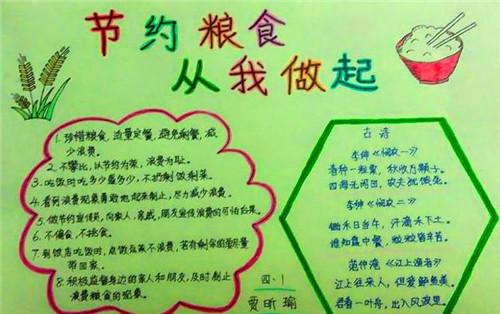 节约粮食
从我做起
1.珍惜粮食，适量定餐，避免剩餐，减
少浪费。
2.不攀比，以节约为荣，浪费为耻。
3.吃饭时吃多少盛多少，不扔剩饭剩菜。
4.看到浪费现象勇敢地起来制止，尽力减少浪费。
5.做节约宣传员，向家人，亲戚，朋友宣传浪费的可怕后果。
6.不偏食，不挑食。
7.到饭店吃饭时，点饭点菜不浪费，若有剩余的要尽量
带回家。
8.积极监督身边的家人和朋友，及时制止
浪费粮食的现象。
古诗
李绅《悯农一》
春种一粒粟，秋收万颗子。
四海无闲田，农夫犹饿死。
李绅《悯农二》
锄禾日当午，汗滴禾下土。
谁知盘中餐，粒粒皆辛苦。
范仲淹《江上渔者》
江上往来人，但爱鲈鱼美。
君看一叶舟，出入风波里。
四.1
贾昕瑜